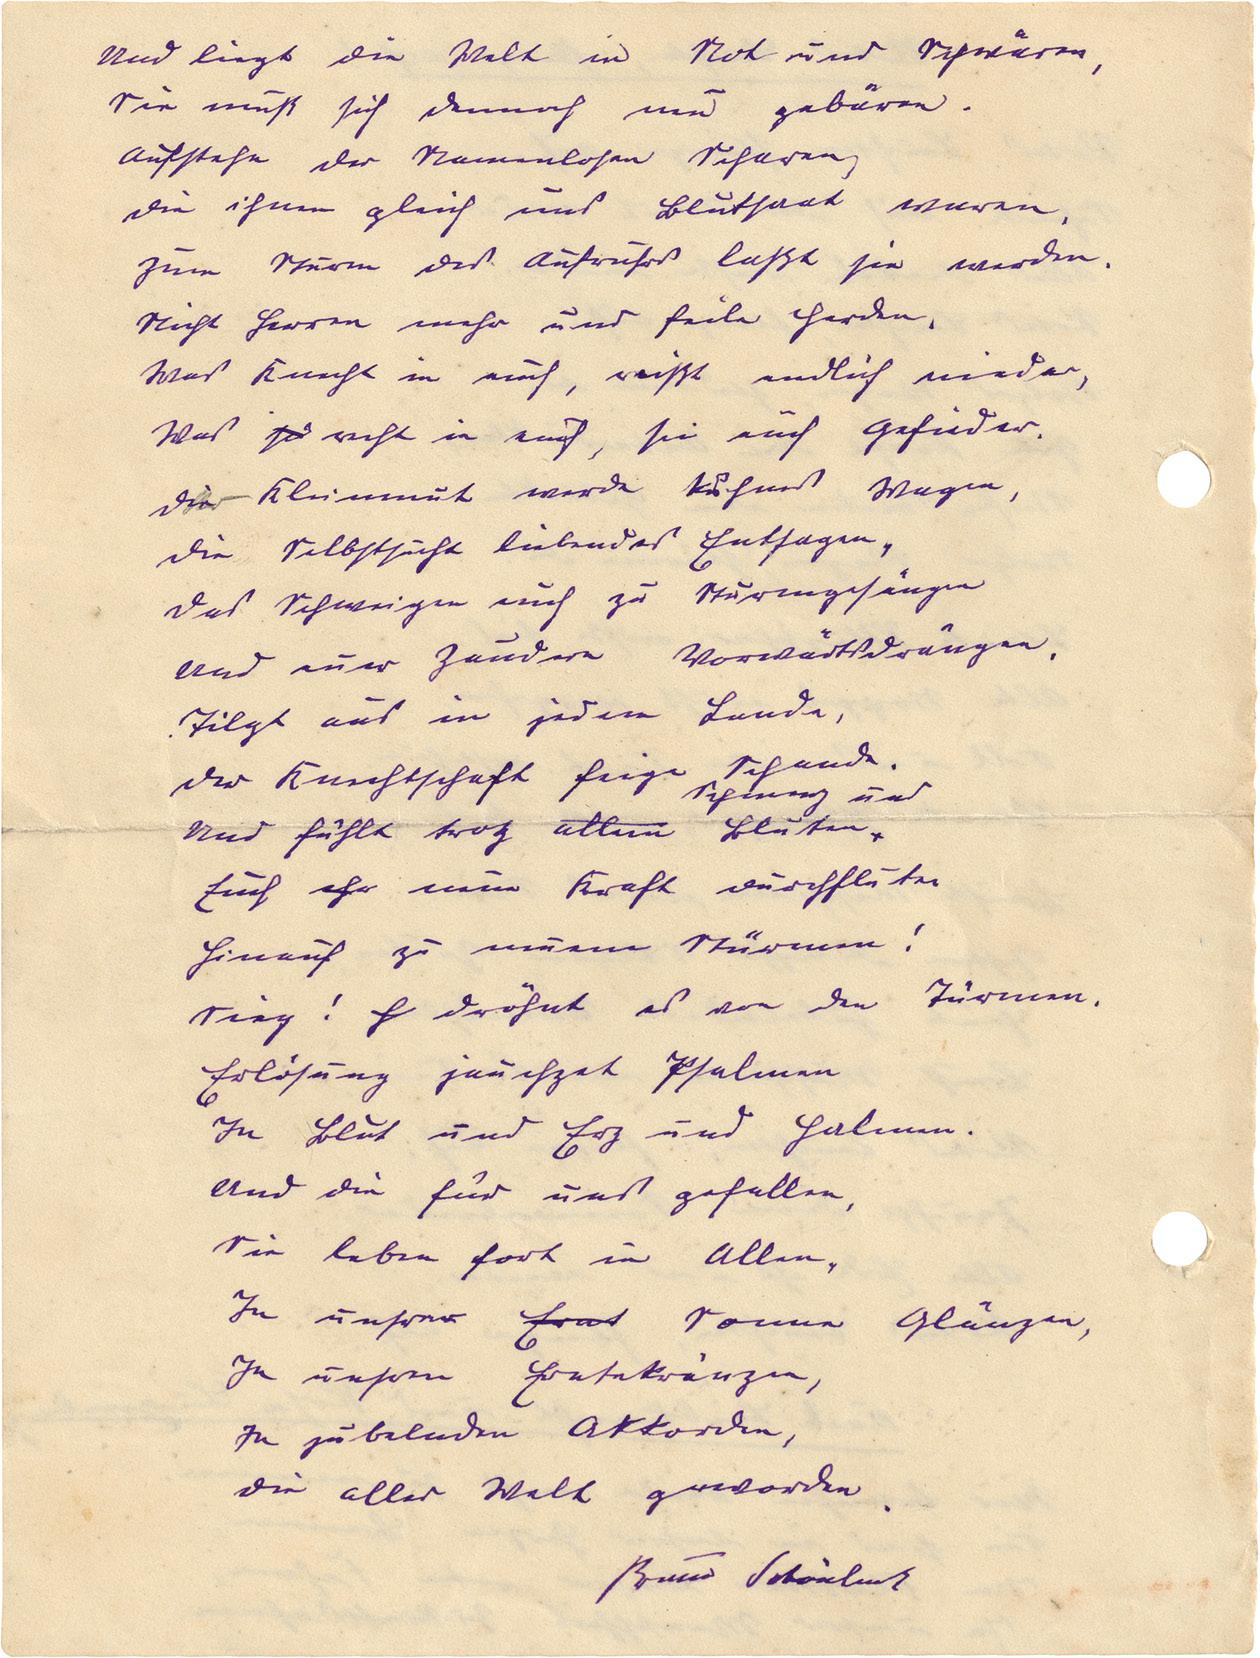 Und liegt die Welt in Not und Schwären,
Sie muß sich dennoch neu gebären.
Aufstehn der Namenlosen Scharen,
die ihnen gleich uns Blutsaat waren,
Zum Sturm des Aufruhrs laßt sie werden.
Nicht Herren mehr und feile Herden,
Was Knecht in euch, reißt endlich nieder,
Was recht in euch, sei euch Gefieder.
der Kleinmut werde kühnes Wagen,
die Selbstsucht liebendes Entsagen,
das Schweigen euch zu Sturmgesängen
Und euer Zaudern Vorwärtsdrängen.
Tilgt aus in jedem Lande,
der Knechtschaft feige Schande.
Schmerz und
Und fühlt trotz allem Bluten,
Euch ihr neue Kraft durchfluten
Hinauf zu neuem Stürmen!
Sieg! dröhnt es von den Türmen.
Erlösung jauchzet Psalmen
In Blut und Erz und Halmen.
Und die für uns gefallen,
Sie leben fort in Allen,
In unsrer Ernt Sonne Glänzen,
In unsren Erntekränzen,
In jubelnden Akkorden,
die aller Welt geworden.
Bruno Schönlank